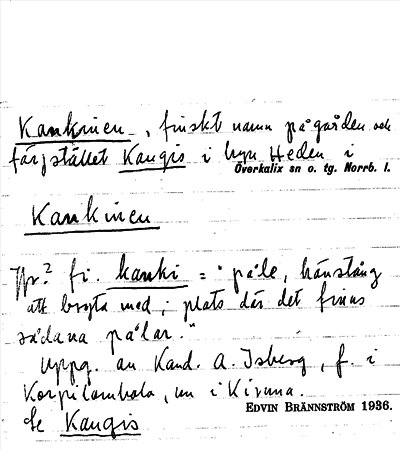 Kankinen, finskt namn på gården och
färjstället Kangis i byn Heden i
Överkalix sn o. tg. Norrb. l.
Kankinen
Jfr? fi. kanki = "påle, hävstång
att bryta med; plats där det finns
sådana pålar."
Uppg. av Kand. A. Isberg, f. i
Korpilombolo, nu i Kiruna.
EDVIN BRÄNNSTRÖM 1936.
Se Kangis